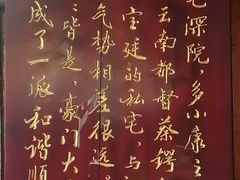 宅深院，多小康之
云南都督蔡锷
宝廷的私宅，与
气势相差很远。
皆是，豪门大
成了一派和谐顺